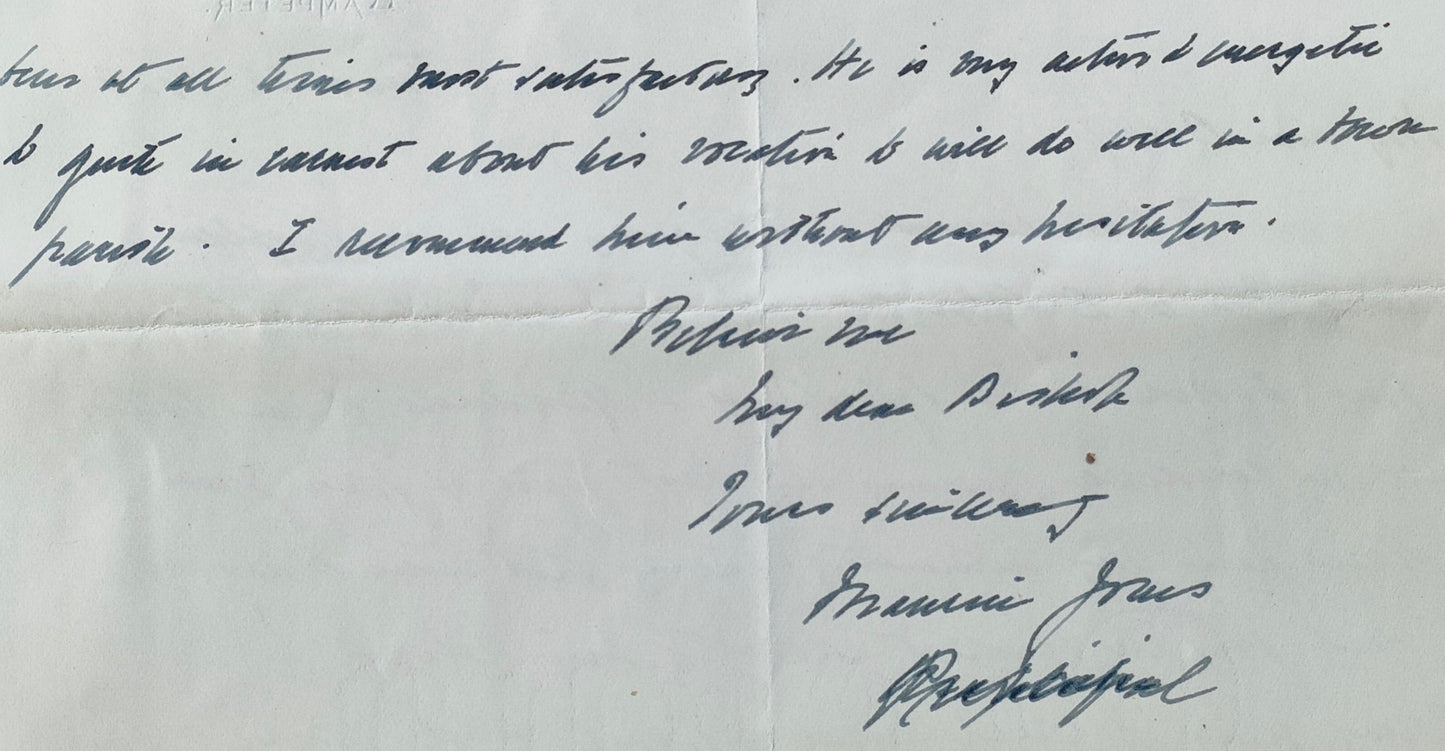 LAMPETER.
been at all times most satisfactory. He is very active & energetic
& quite in earnest about his vocation & will do well in a town
parish. I recommend him without any hesitation.
Believe me
My dear Bishop
Yours sincerely
Maurice Jones
Principal